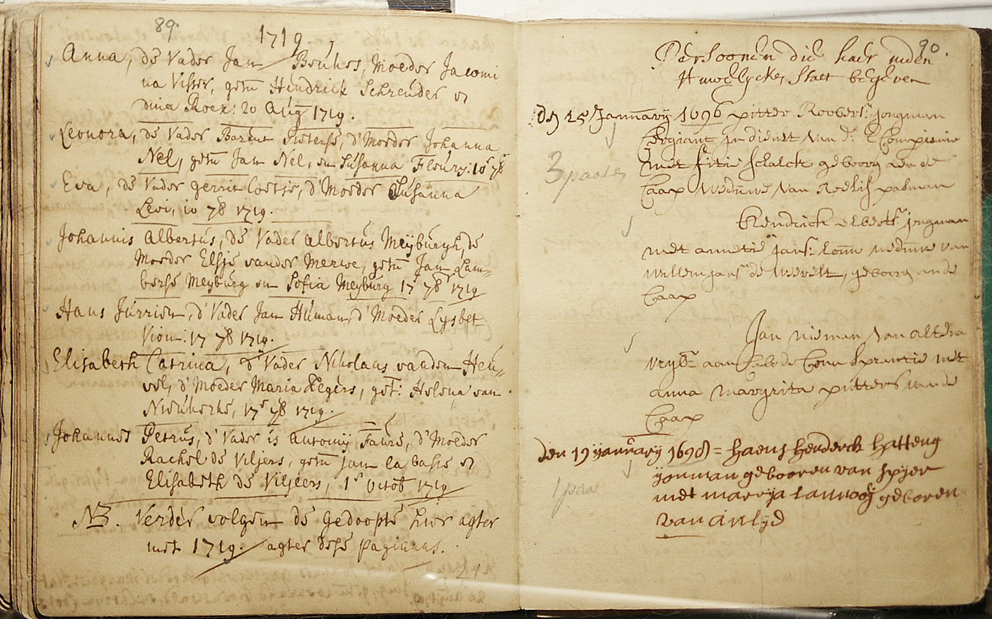 89.
1719.
Anna, de Vader Jan Bonhos, Moeder Jacomi
na Visser, getu Hendrick Schreuder &
dina Roex: 20 Aug 1719.
Leonora, de Vader Barent Pieterss, d'Moeder Johanna
Nel, getu Jan Nel, en Susanna Floury. 10 7b
Eva, de Vader gerrit Coetse, d'Moeder Susanna
Levi, 10 7b 1719.
Johannis Albertus, de Vader Albertus Meijburgh, de
Moeder Elsje vander Merwe, getu Jan Lam-
berse Meyburg en Sofia Meyburg 17 7b 1719
Hans Jurrien, d'Vader Jan Human, d'Moeder Lysbet
Vion. 17 7b 1719.
Elisabeth Catrina, d'Vader Nikolaas vanden Heu-
vel, d'Moeder Maria Zegers, get: Helena van
17 7b 1719.
Johannes Petrus, d'Vader is Antonij Faure, d'Moeder
Rachel de Viljers, getu Jan la basie &
Elisabeth de Viljeers, 1 octob 1719
NB. Verder volgen de gedoopte hier agter
met 1719. agter dese paginas.
90.
Persoonen die haer inden
Huwelycken Staet begeven
den 25 January 1696 pitter Roberts jongman
Sergiant in dienst van d' E Compenie
met Sitie Schalck geboorg van de
Caap Weduwe van palman
3 paaren
Hendrick Elberts jongman
met annetie Jans weduwe van
Willem Jans de geboorg ande
Caap
Jan Nieman van
vryb aan Caap met
anna margrita pitters vande
Caap
den 19 january 1698 = haens henderck hatteng
yonman geboren van spyer
met marryja Lannooij geboren
van
1 paar